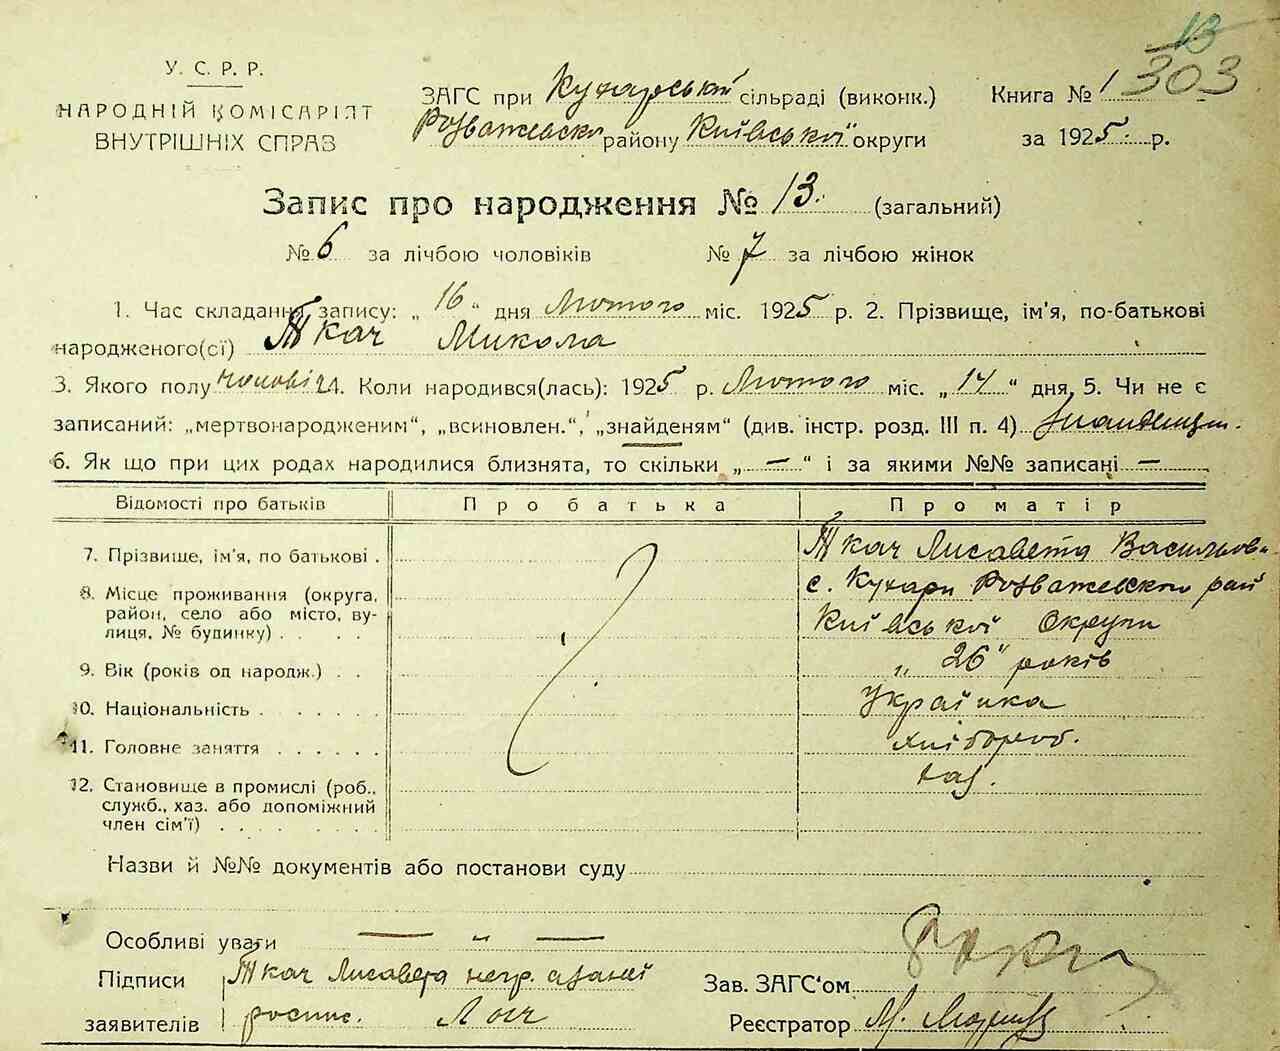 13
303
У. С. Р. Р.
НАРОДНІЙ КОМІСАРІЯТ
ВНУТРІШНІХ СПРАВ
ЗАГС при Кухарській сільраді (виконк.)
Розважевско району Київської округи
Книга № 1
за 1925 р.
Запис про народження № 13. (загальний)
№ 6 за лічбою чоловіків № 7 за лічбою жінок
1. Час складання запису: „16“ дня Лютого міс. 1925 р. 2. Прізвище, ім'я, по-батькові
народженого(сї) Ткач Микола
3. Якого полу чолові 4. Коли народився(лась): 1925 р. Лютого міс. „14“ дня, 5. Чи не є
записаний: „мертвонародженим“, „всиновлен.“, „знайденям“ (див. інстр. розд. III п. 4)
6. Як що при цих родах народилися близнята, то скільки „—“ і за якими №№ записані —
Відомості про батьків Про батька Про матір
7. Прізвище, ім'я, по батькові . Ткач Лисавета Васильов
8. Місце проживання (округа, район, село або місто, вулиця, № будинку) . . . . с. Кухари Розважевского рай
Київської Округи
9. Вік (років од народж.) . . „26“ років
10. Національність . . . . . . Українка
11. Головне заняття . . . . . . хлібороб.
12. Становище в промислі (роб., служб., хаз. або допоміжний член сім'ї) . . . . . . . хаз.
Назви й №№ документів або постанови суду
Особливі уваги — „ —
Підписи Ткач Лисавета негр. а за неї
заявителів роспис.
Зав. ЗАГС'ом
Реєстратор М.